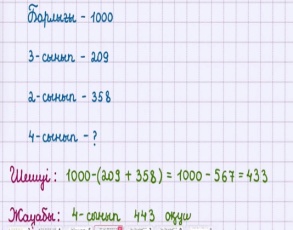 Барлығы - 1000
3-сынып - 209
2-сынып - 358
4-сынып - ?
Шешуі: 1000-(209 + 358) = 1000 - 567 = 433
Жауабы: 4-сынып 443 оқушы